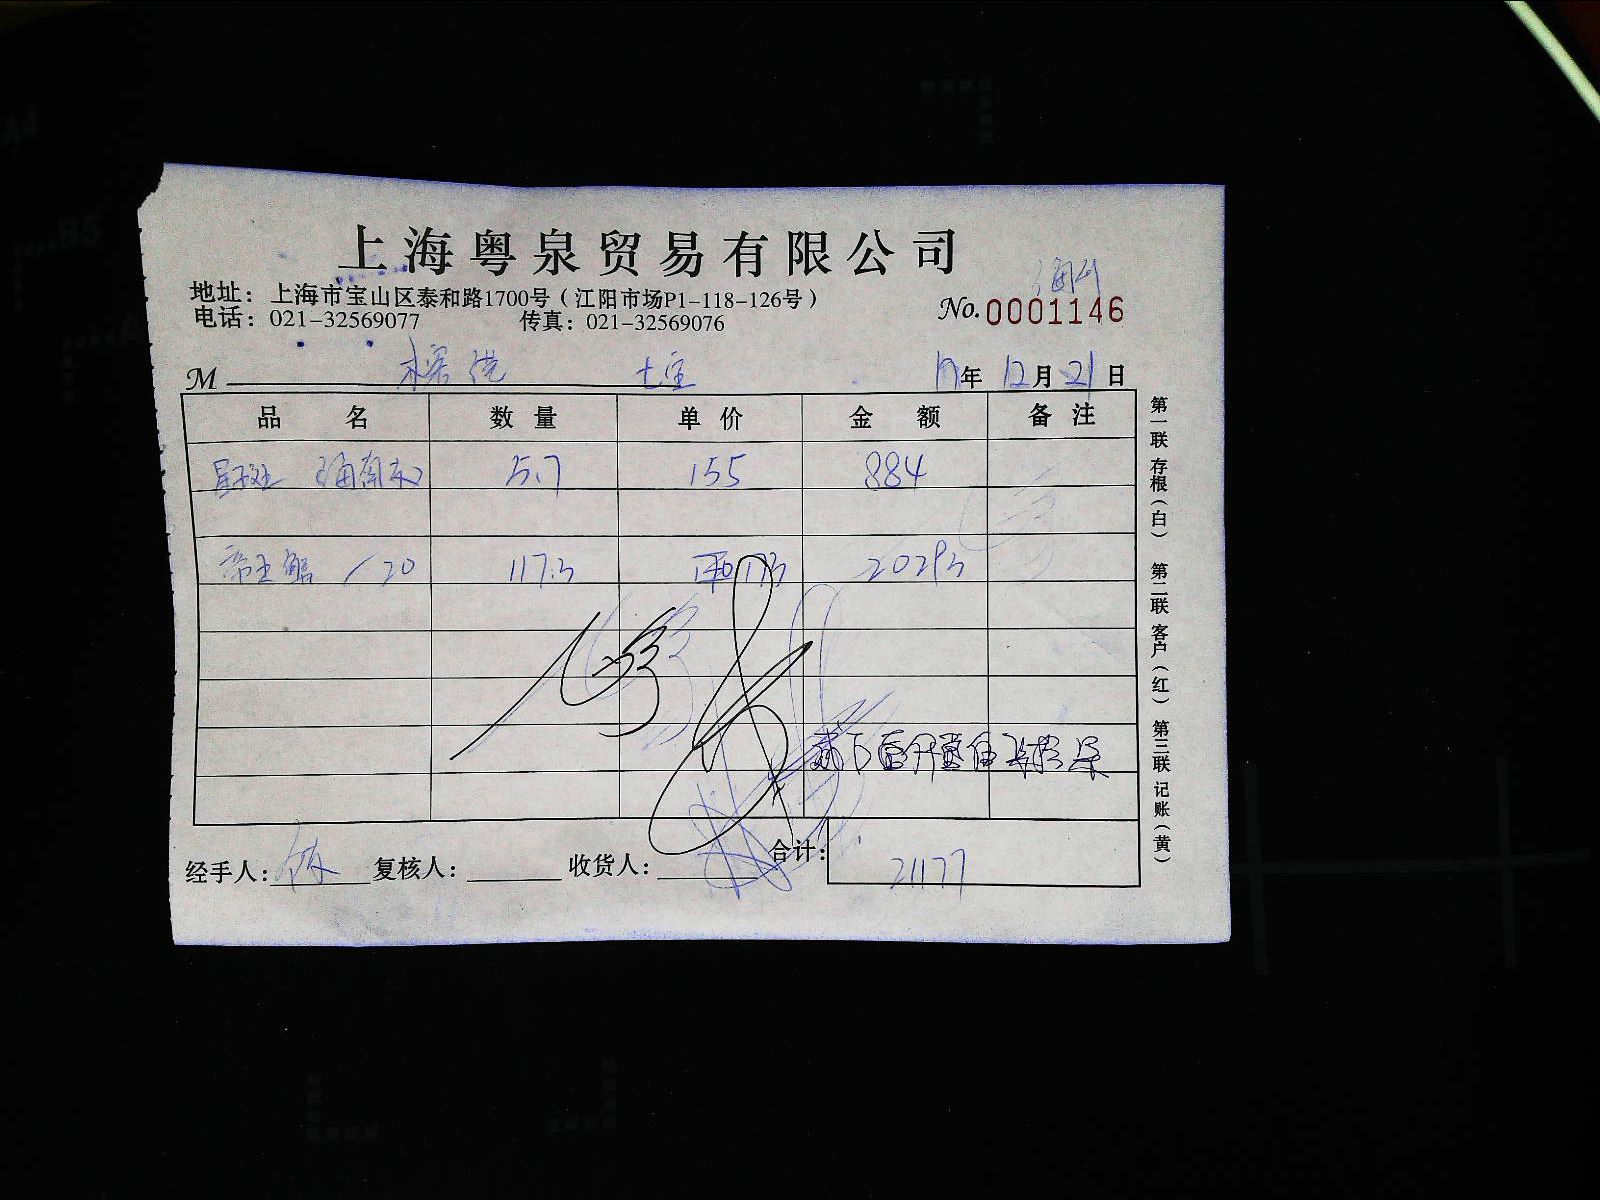 上海粤泉贸易有限公司
地址：上海市宝山区泰和路1700号（江阳市场P1-118-126号）
电话：021-32569077 传真：021-32569076
No.0001146
M 七宝 17年12月21日
品 名 数 量 单 价 金 额 备 注
5.7 155 884
帝王蟹 /20 117.3 173 20293
合计： 21177
经手人： 复核人： 收货人：
第一联 存根（白） 第二联 客户（红） 第三联 记账（黄）